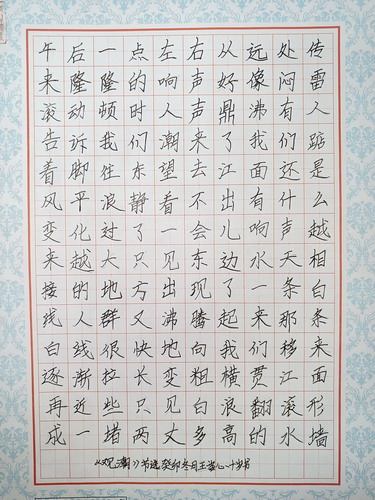 午后一点左右从远处传
来隆隆的响声好像闷雷
滚动顿时人声鼎沸有人
告诉我们潮来了我们踮
着脚往东望去江面还是
风平浪静看不出有什么
变化过了一会儿响声越
来越大只见东边水天相
接的地方出现了一条白
线人群又沸腾起来那条
白线很快地向我们移来
逐渐拉长变粗横贯江面
再近些只见白浪翻滚形
成一堵两丈多高的水墙
《观潮》节选癸卯冬月王